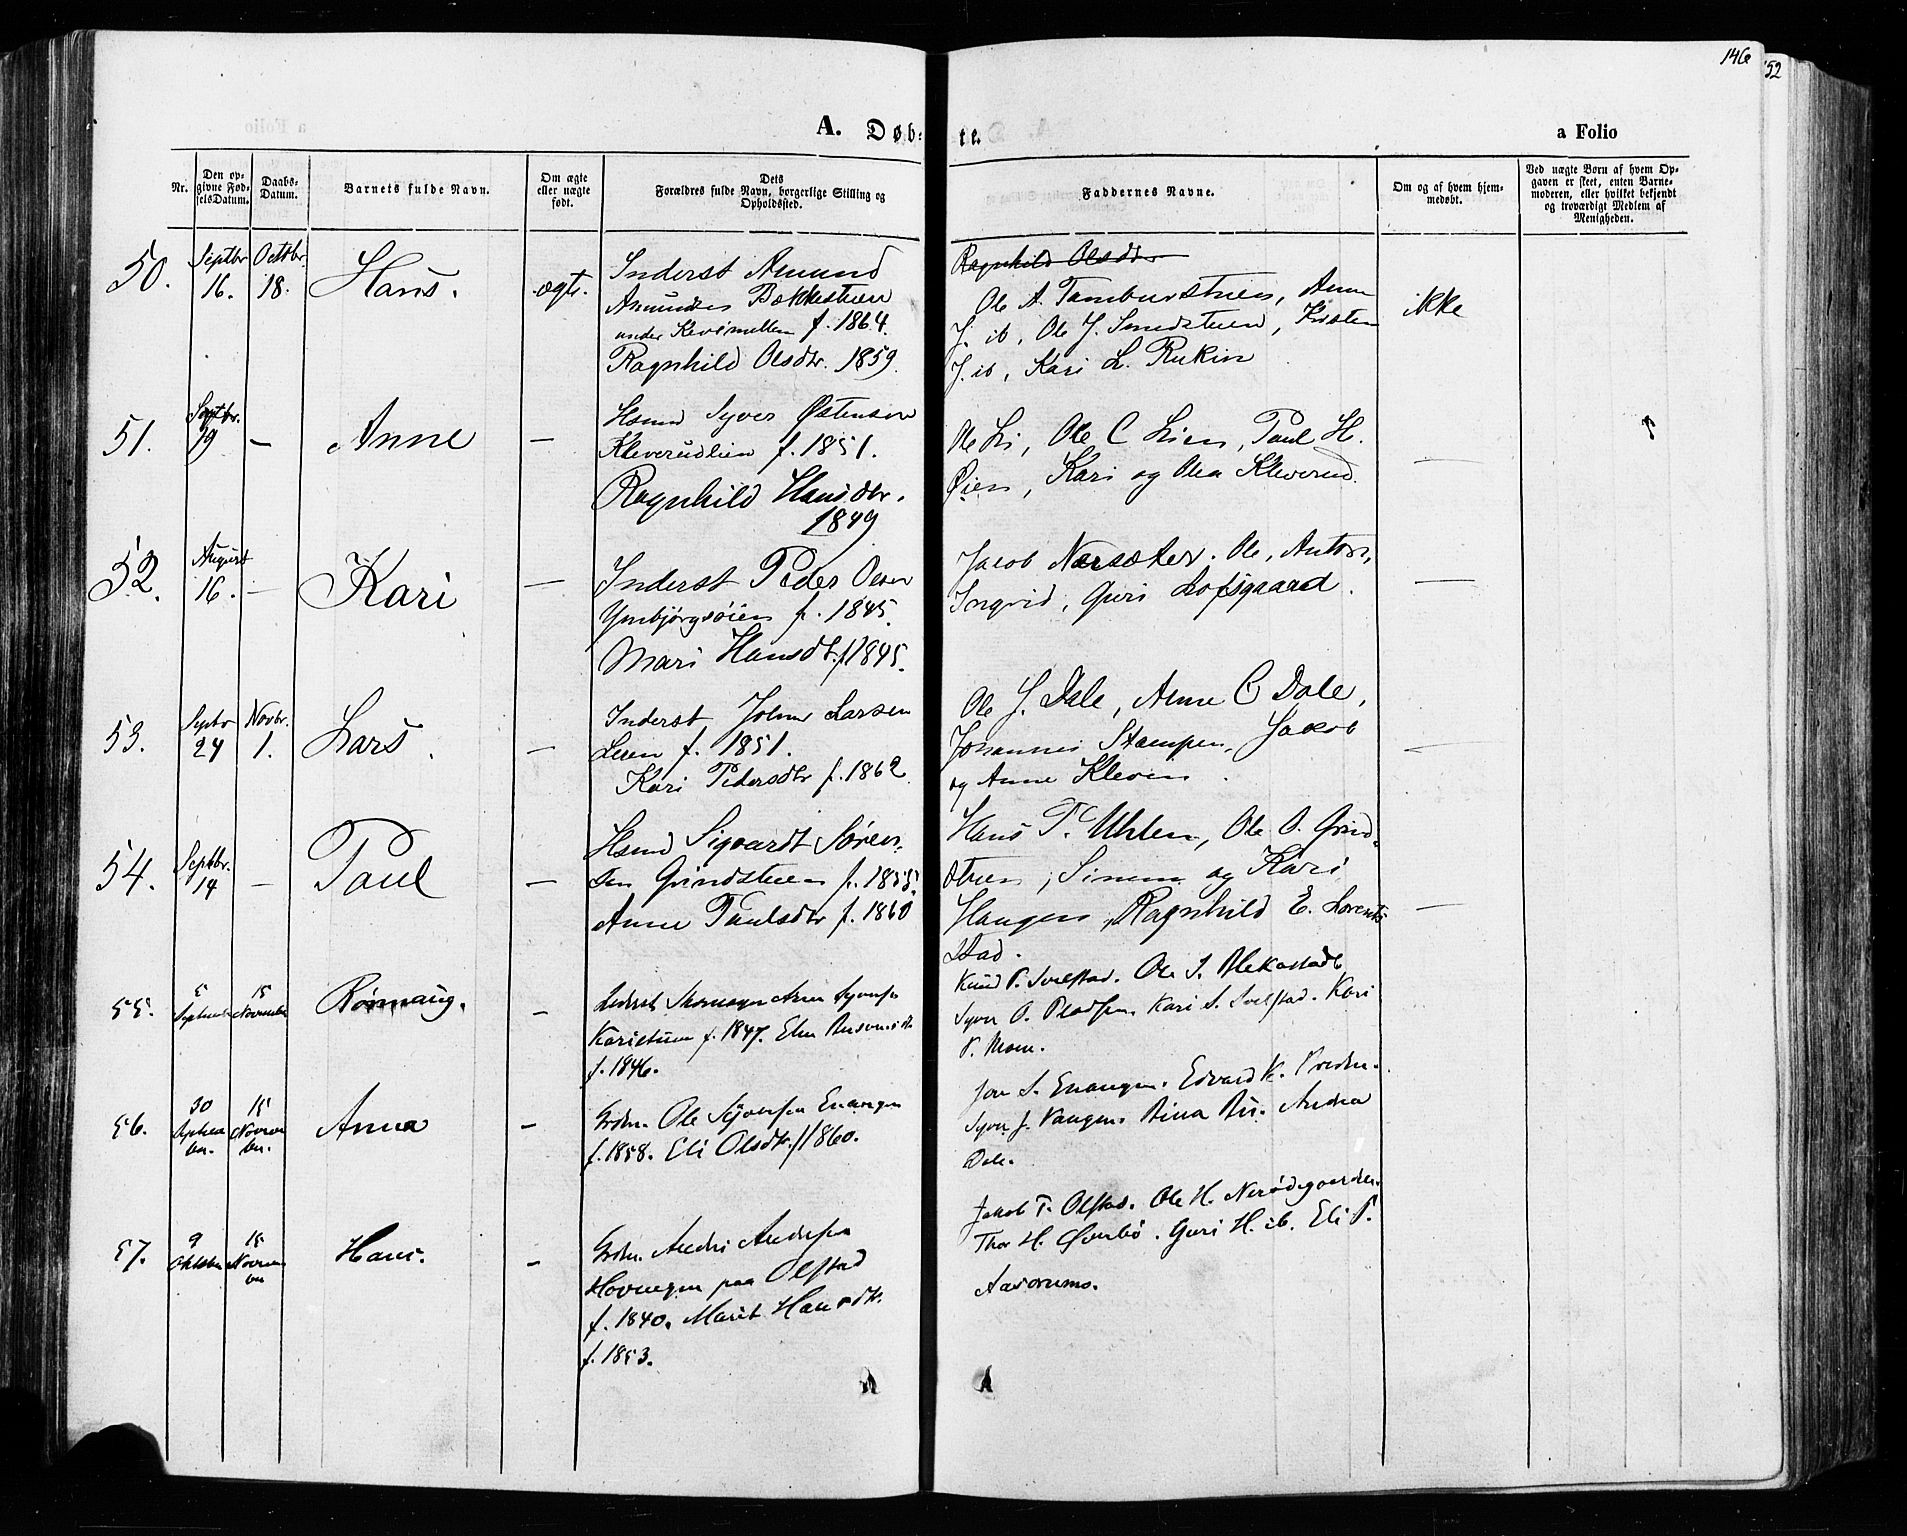 146
152
A. Døb-
te.
a Folio
Nr.
Den op-
givne Fød-
selsDatum.
Daabs-
Datum.
Barnets fulde Navn.
Om ægte
eller uægte
født.
Dets
Forældres fulde Navn, borgerlige Stilling og
Opholdssted.
Faddernes Navne.
Om og af hvem hjem-
medøbt.
Ved uægte Børn af hvem Op-
gaven er skeet, enten Barne-
moderen, eller hvilket bekjendt
og troværdigt Medlem af
Menigheden.
50.
Septbr
16.
Octbr.
18.
Hans.
ægte.
Inderst Amund
Amundsen Bækkestuen
under f. 1864.
Ragnhild Olsdtr. 1859.
Ragnhild Olsdtr
Ole A. Tamburstuen, Anne
J. ib, Ole J. Smedstuen, Kristen
J. ib, Kari L. Rukin
ikke
51.
Septbr.
19
—
Anne
—
Hsmd Syver Østensen
Kleverudlien f. 1851.
Ragnhild Hansdtr.
1849
Ole Li, Ole C Lien, Paul H.
Øien, Kari og Olea Kleverud.
—
52.
August
16.
—
Kari
—
Inderst Peder Olsen
Ymbjørgsøien f. 1845.
Mari Hansdt. f. 1845.
Jacob Narsæter. Ole, Anton,
Ingrid, Guri Lofsgaard.
—
53.
Septbr
24
Novbr.
1.
Lars.
—
Inderst Johs Larsen
f. 1851.
Kari Pedersdtr f. 1862
Ole J. Dale, Anne C Dale,
Johannes Stampen, Jakob
og Anne Kleven.
—
54.
Septbr.
14
—
Paul
—
Hsmd Sigvardt Sören-
sen Grindstuen f. 1858.
Anne Paulsdtr f. 1860
Hans T. Uhlen, Ole O. Grind-
stuen, Simen og Kari
Haugen, Ragnhild E. Lorents-
stad.
—
55.
5
September
15
November
Rønnaug.
—
Inderst Arne Syversen
Karistuen f. 1847.
f. 1846.
Knud P. Svelstad. Ole S. Blekastad
Syver O. Kari S. Svelstad. Kari
P. Moen.
56.
30
Septem
ber.
15
Novem
ber.
Anna
—
Grdm. Ole Syversen Enangen
f. 1858. Eli Olsdtr. f. 1860.
Jon S. Enangen. Edvard K.
Syver J. Vangen. Dina Andrea
Dale.
57.
9
Oktober
15
Novem
ber
Hans.
—
Grdm. Andr. Andersen
Hovengen paa Olstad
f. 1840. Marit Hansdtr.
f. 1853.
Jakob T. Olstad. Ole H. Nerødegaarden.
Thor H. Øverbø. Guri H. ib. Eli P.
Aasorums.